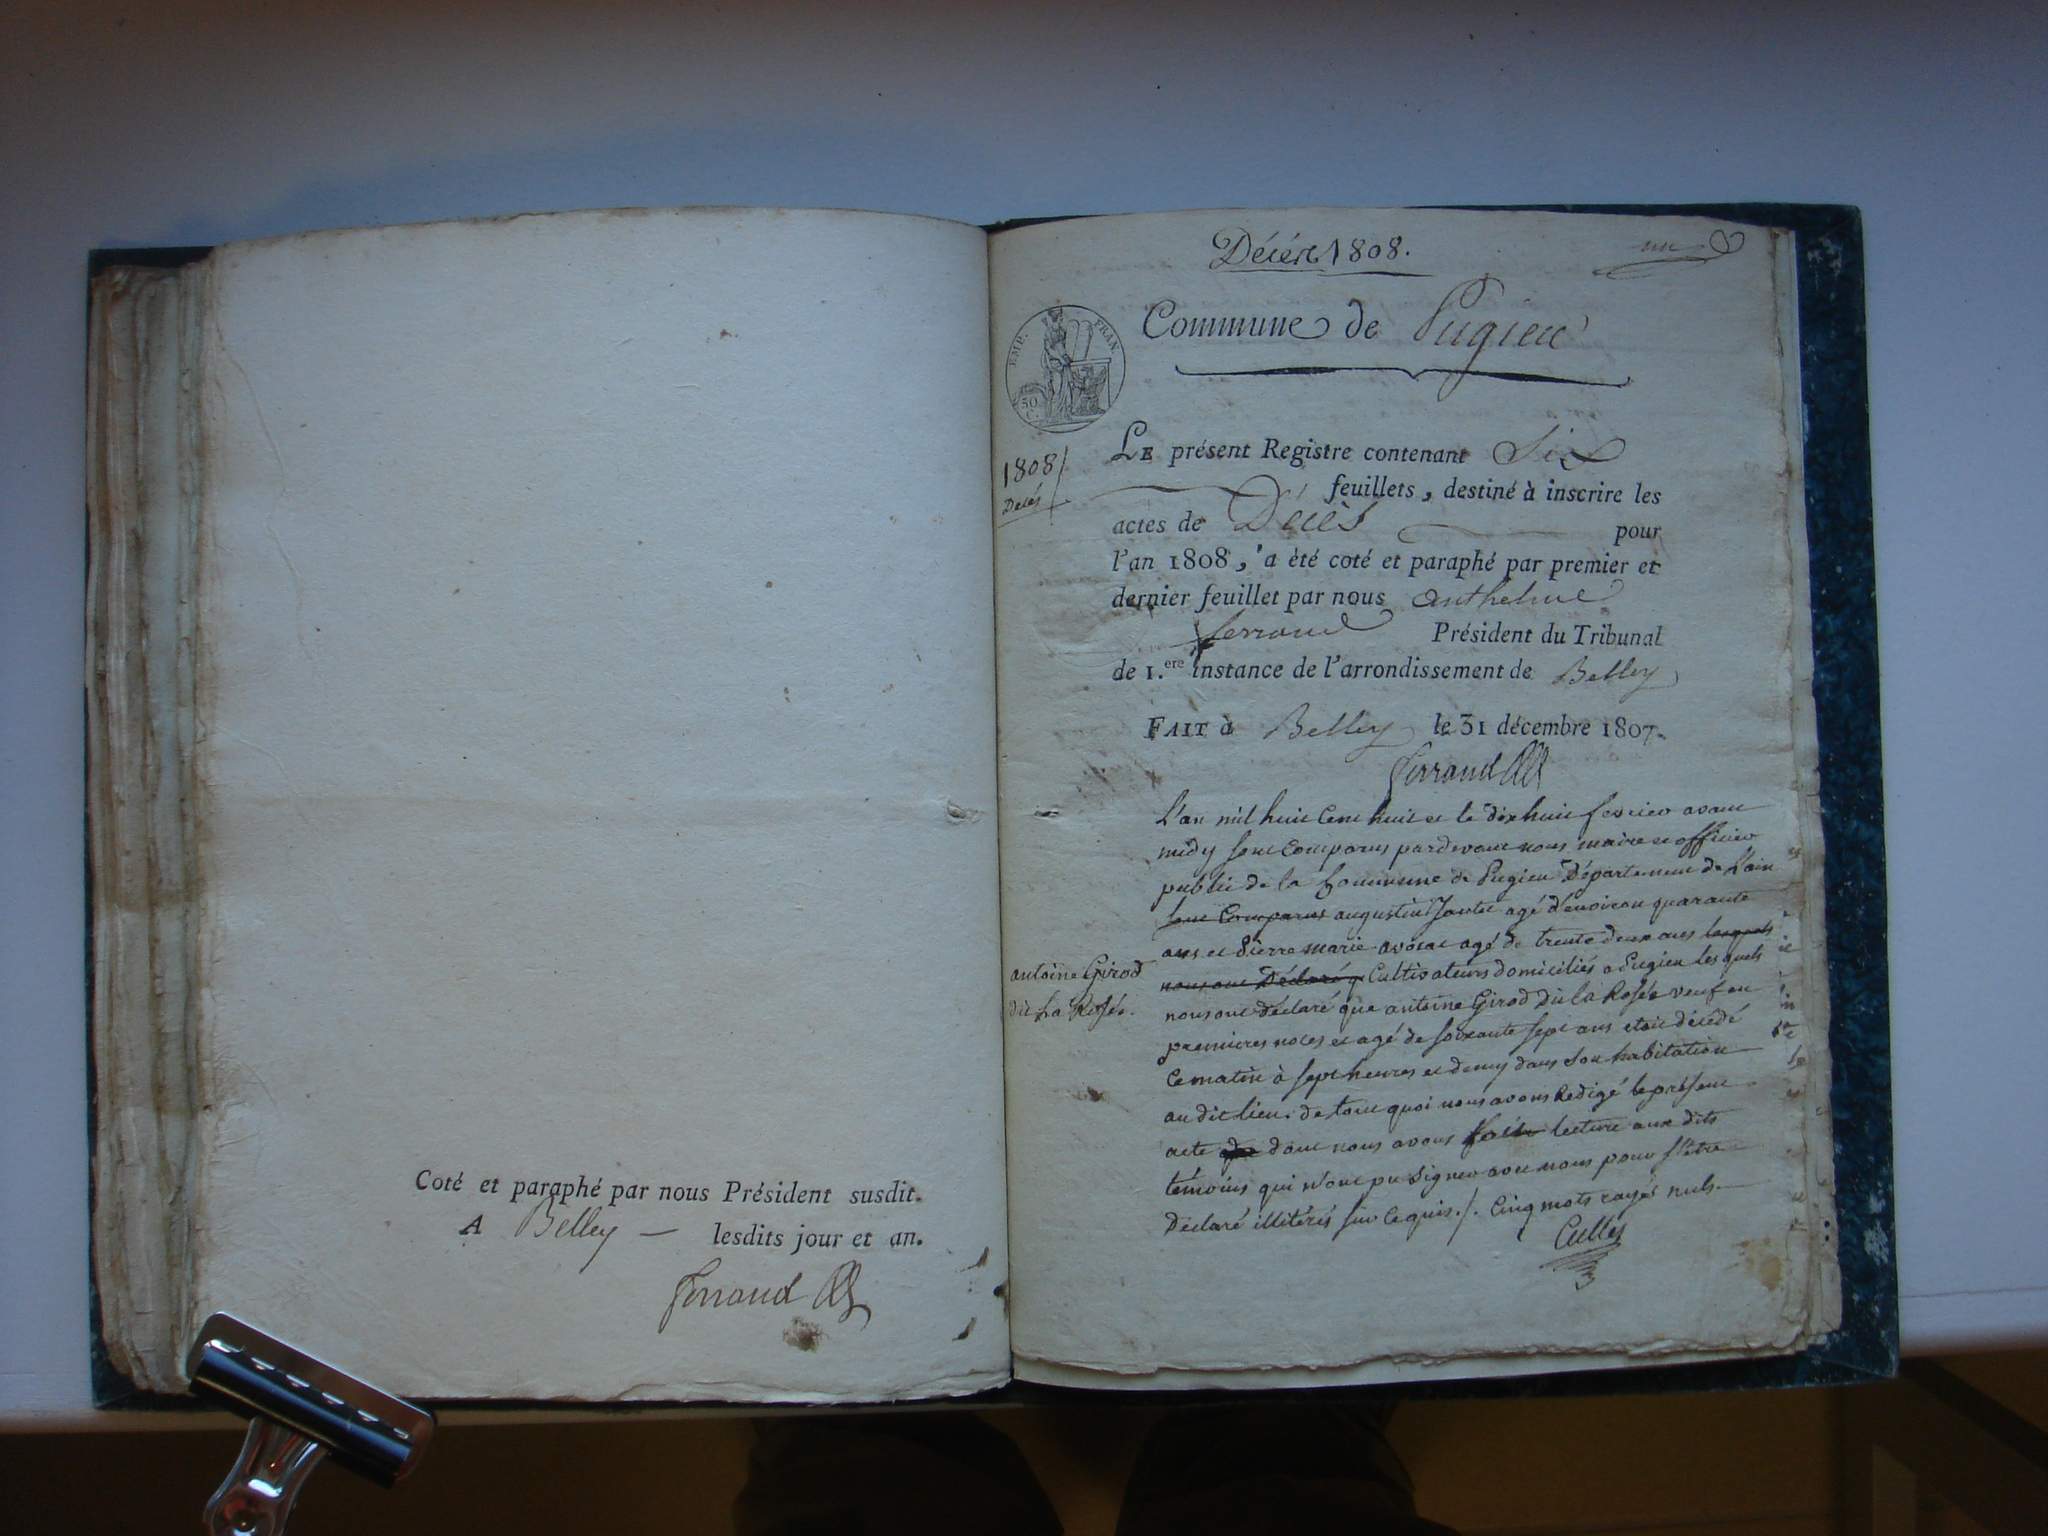 Coté et paraphé par nous Président susdit.
A Belley lesdits jour et an.
Ferrand
Décés 1808.
un
Commune de Pugieu
EMP. FRAN.
50 C.
1808
Decés
LE présent Registre contenant Six
feuillets, destiné à inscrire les
actes de Décès pour
l'an 1808, a été coté et paraphé par premier et
dernier feuillet par nous anthelme
ferrand Président du Tribunal
de 1.ere instance de l'arrondissement de Belley
FAIT à Belley le 31 décembre 1807.
Ferrand
L'an mil huit Cent huit et le dix huit fevrier avant
midy sont Comparus pardevant nous maire et officier
public de la Commune de Pugieu Département de L'ain
sont Comparus augustin Jantet agé d'environ quarante
ans et Pierre marie avocat agé de trente deux ans lesquels
nous ont Déclaré q Cultivateurs domiciliés a Pugieu lesquels
antoine Girod
dit La Rosée.
nous ont déclaré que antoine Girod dit la Rosée veuf en
premieres noces et agé de soixante sept ans etoit décédé
Ce matin à sept heures et demy dans son habitation
au dit lieu. de tout quoi nous avons Redigé le présent
acte dont nous avons fait lecture aux dits
témoins qui n'ont pu signer avec nous pour s'être
déclaré illitérés sur ce quis./. Cinq mots rayés nuls.
Cullet